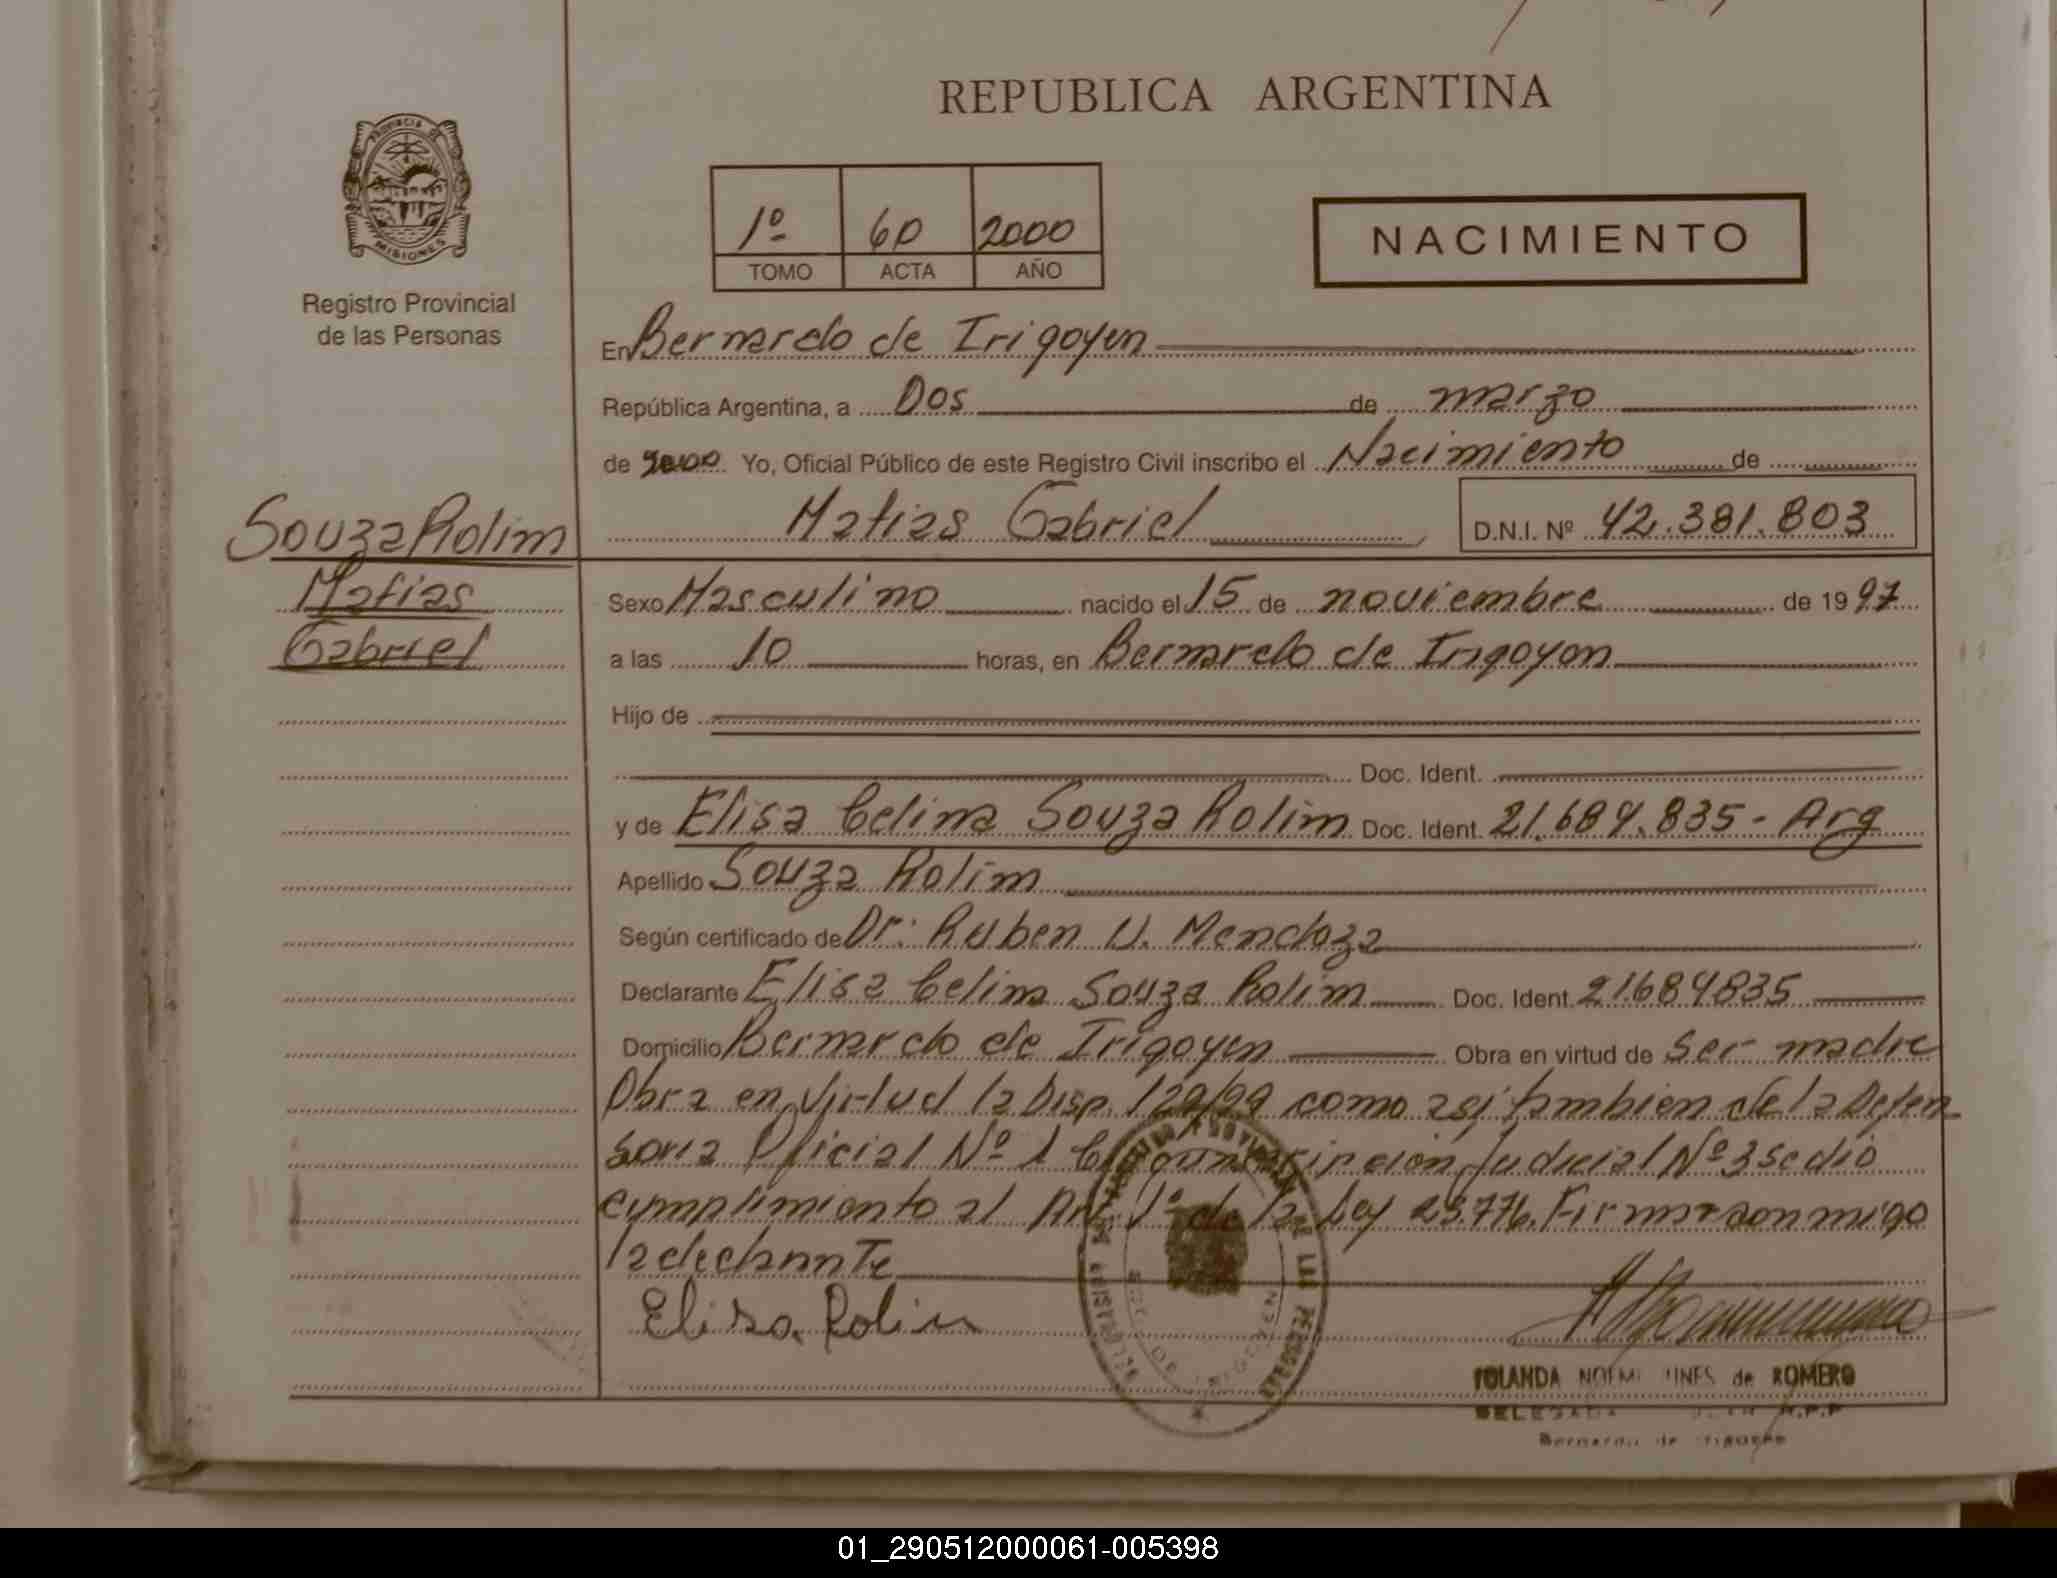 REPUBLICA ARGENTINA
PROVINCIA DE
MISIONES
Registro Provincial
de las Personas
1º 60 2000
TOMO ACTA AÑO
NACIMIENTO
En Bernardo de Irigoyen
República Argentina, a Dos de marzo
de 2000 Yo, Oficial Público de este Registro Civil inscribo el Nacimiento de
Matias Gabriel D.N.I. Nº 42.381.803
Souza Rolim
Matias
Gabriel
Sexo Masculino nacido el 15 de noviembre de 1997
a las 10 horas, en Bernardo de Irigoyen
Hijo de
Doc. Ident.
y de Elisa Celina Souza Rolim Doc. Ident. 21.684.835 - Arg
Apellido Souza Rolim
Según certificado de Dr. Ruben U. Mendoza
Declarante Elisa Celina Souza Rolim Doc. Ident. 21684835
Domicilio Bernardo de Irigoyen Obra en virtud de ser madre
Obra en virtud la Disp. 129/99 como asi tambien de la Defen
soria Oficial Nº 1 Circunscripcion Judicial Nº 3 se dio
cumplimiento al Art 1º de la Ley 23.776. Firma conmigo
la declarante
Elisa Rolin
YOLANDA NOEMI de ROMERO
DELEGADA R.P.P
Bernardo de Irigoyen
01_290512000061-005398